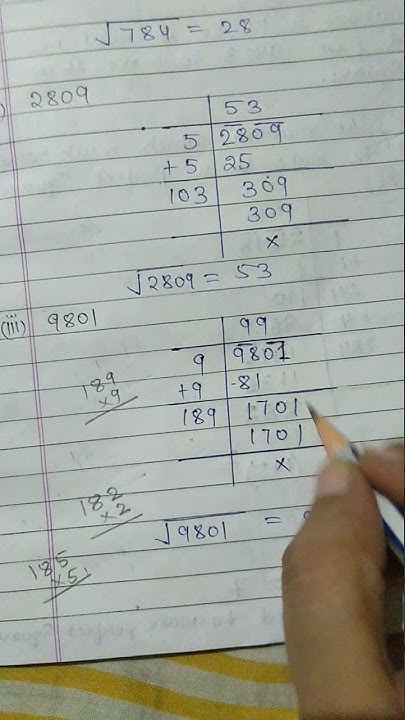 √784 = 28
) 2809
53
5 2809
+ 5 25
103 309
309
x
√2809 = 53
(iii) 9801
99
9 9801
+9 -81
189 1701
1701
x
189
×9
182
×2
√9801 =
185
×5